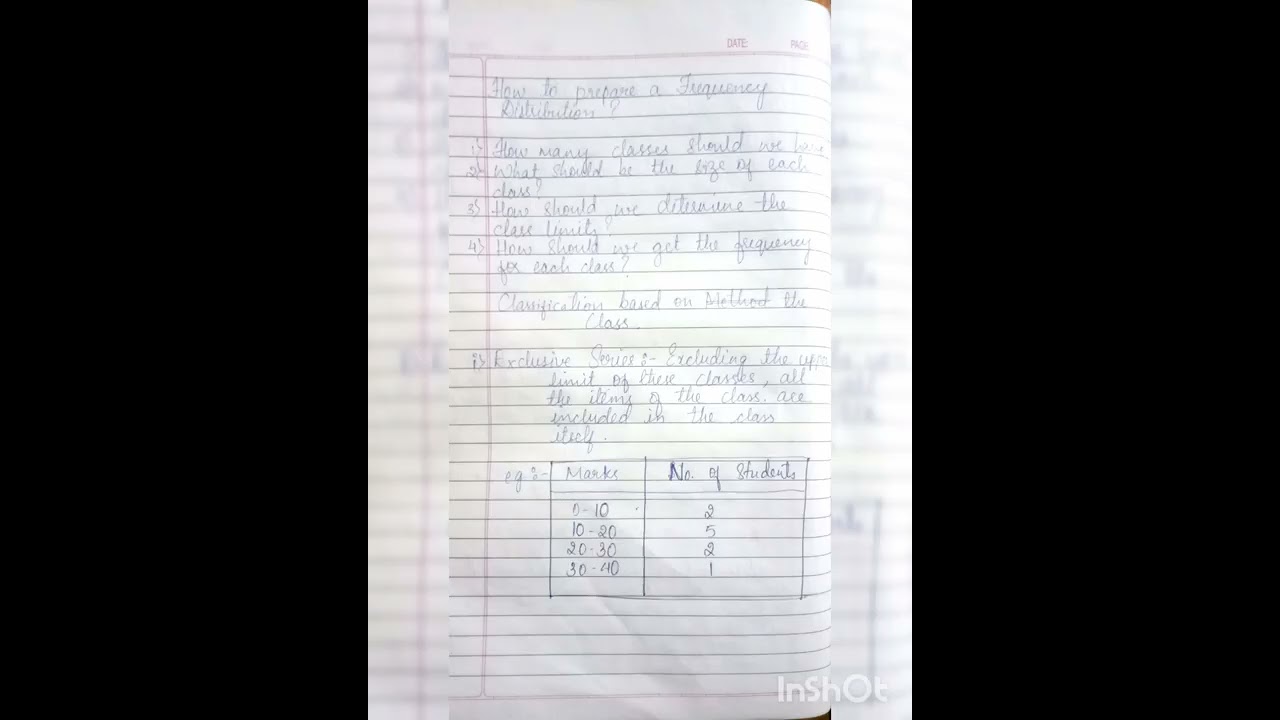 DATE: PAGE
How to prepare a Frequency
Distribution?
1) How many classes should we have
2) What should be the size of each
class?
3) How should we determine the
class limits?
4) How should we get the frequency
for each class?
Classification based on Method the
Class.
i) Exclusive Series:- Excluding the upper
limit of these classes, all
the items of the class are
included in the class
itself.
eg:- Marks No. of Students
0-10 2
10-20 5
20-30 2
30-40 1
InShOt